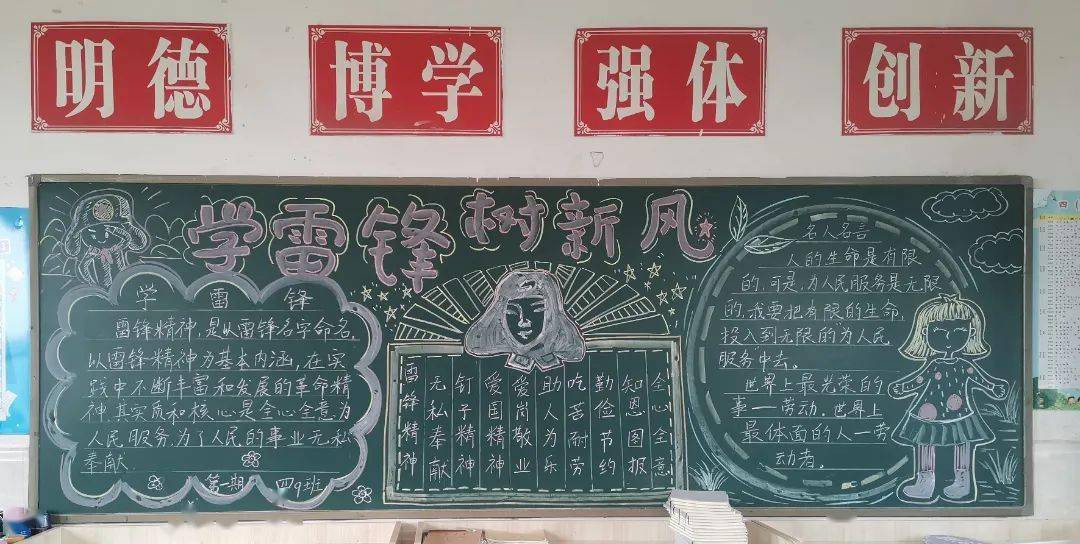 明德
博学
强体
创新
学雷锋树新风
学雷锋
雷锋精神,是以雷锋名字命名,
以雷锋精神为基本内涵,在实
践中不断丰富和发展的革命精
神,其实质和核心是全心全意为
人民服务,为了人民的事业无私
奉献.
第一期 四9班
雷锋精神
无私奉献
钉子精神
爱国精神
爱岗敬业
助人为乐
吃苦耐劳
勤俭节约
知恩图报
全心全意
名人名言
人的生命是有限
的,可是,为人民服务是无限
的,我要把有限的生命,
投入到无限的为人民
服务中去。
世界上最光荣的
事一劳动,世界上
最体面的人一劳
动者。